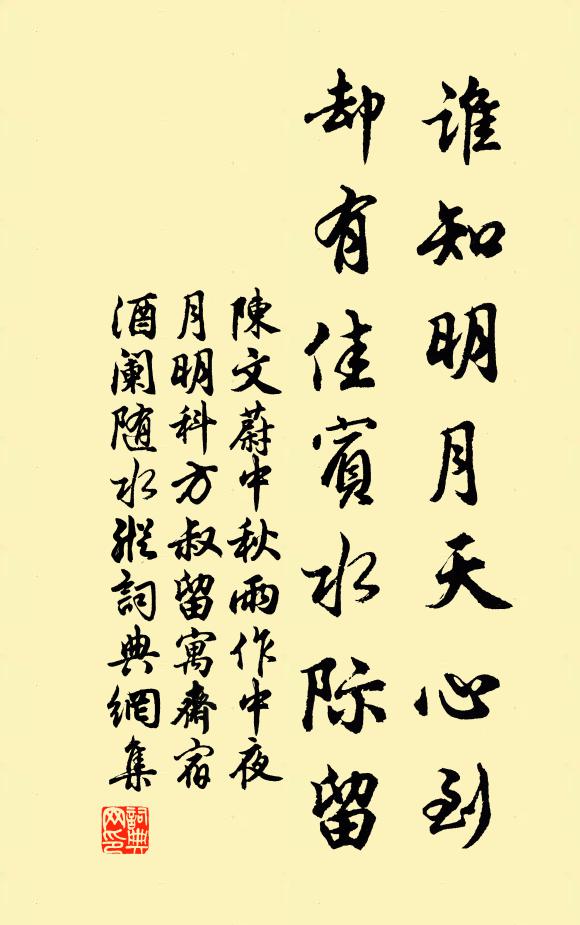 誰知明月天心到
却有佳賓水际留
陳文蔚中秋雨作中夜
月明科方叔留寓齋宿
酒闌随水縱詞典網集
詞典网印